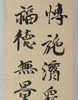 博施濟眾
福德無量